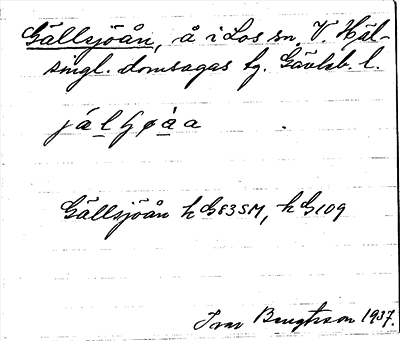 Gällsjöån, å i Los sn. V. Häl-
singl. domsagas tg. Gävleb. l.
Gällsjöån k G83SM, k G109
Ivar Bengtsson 1937.